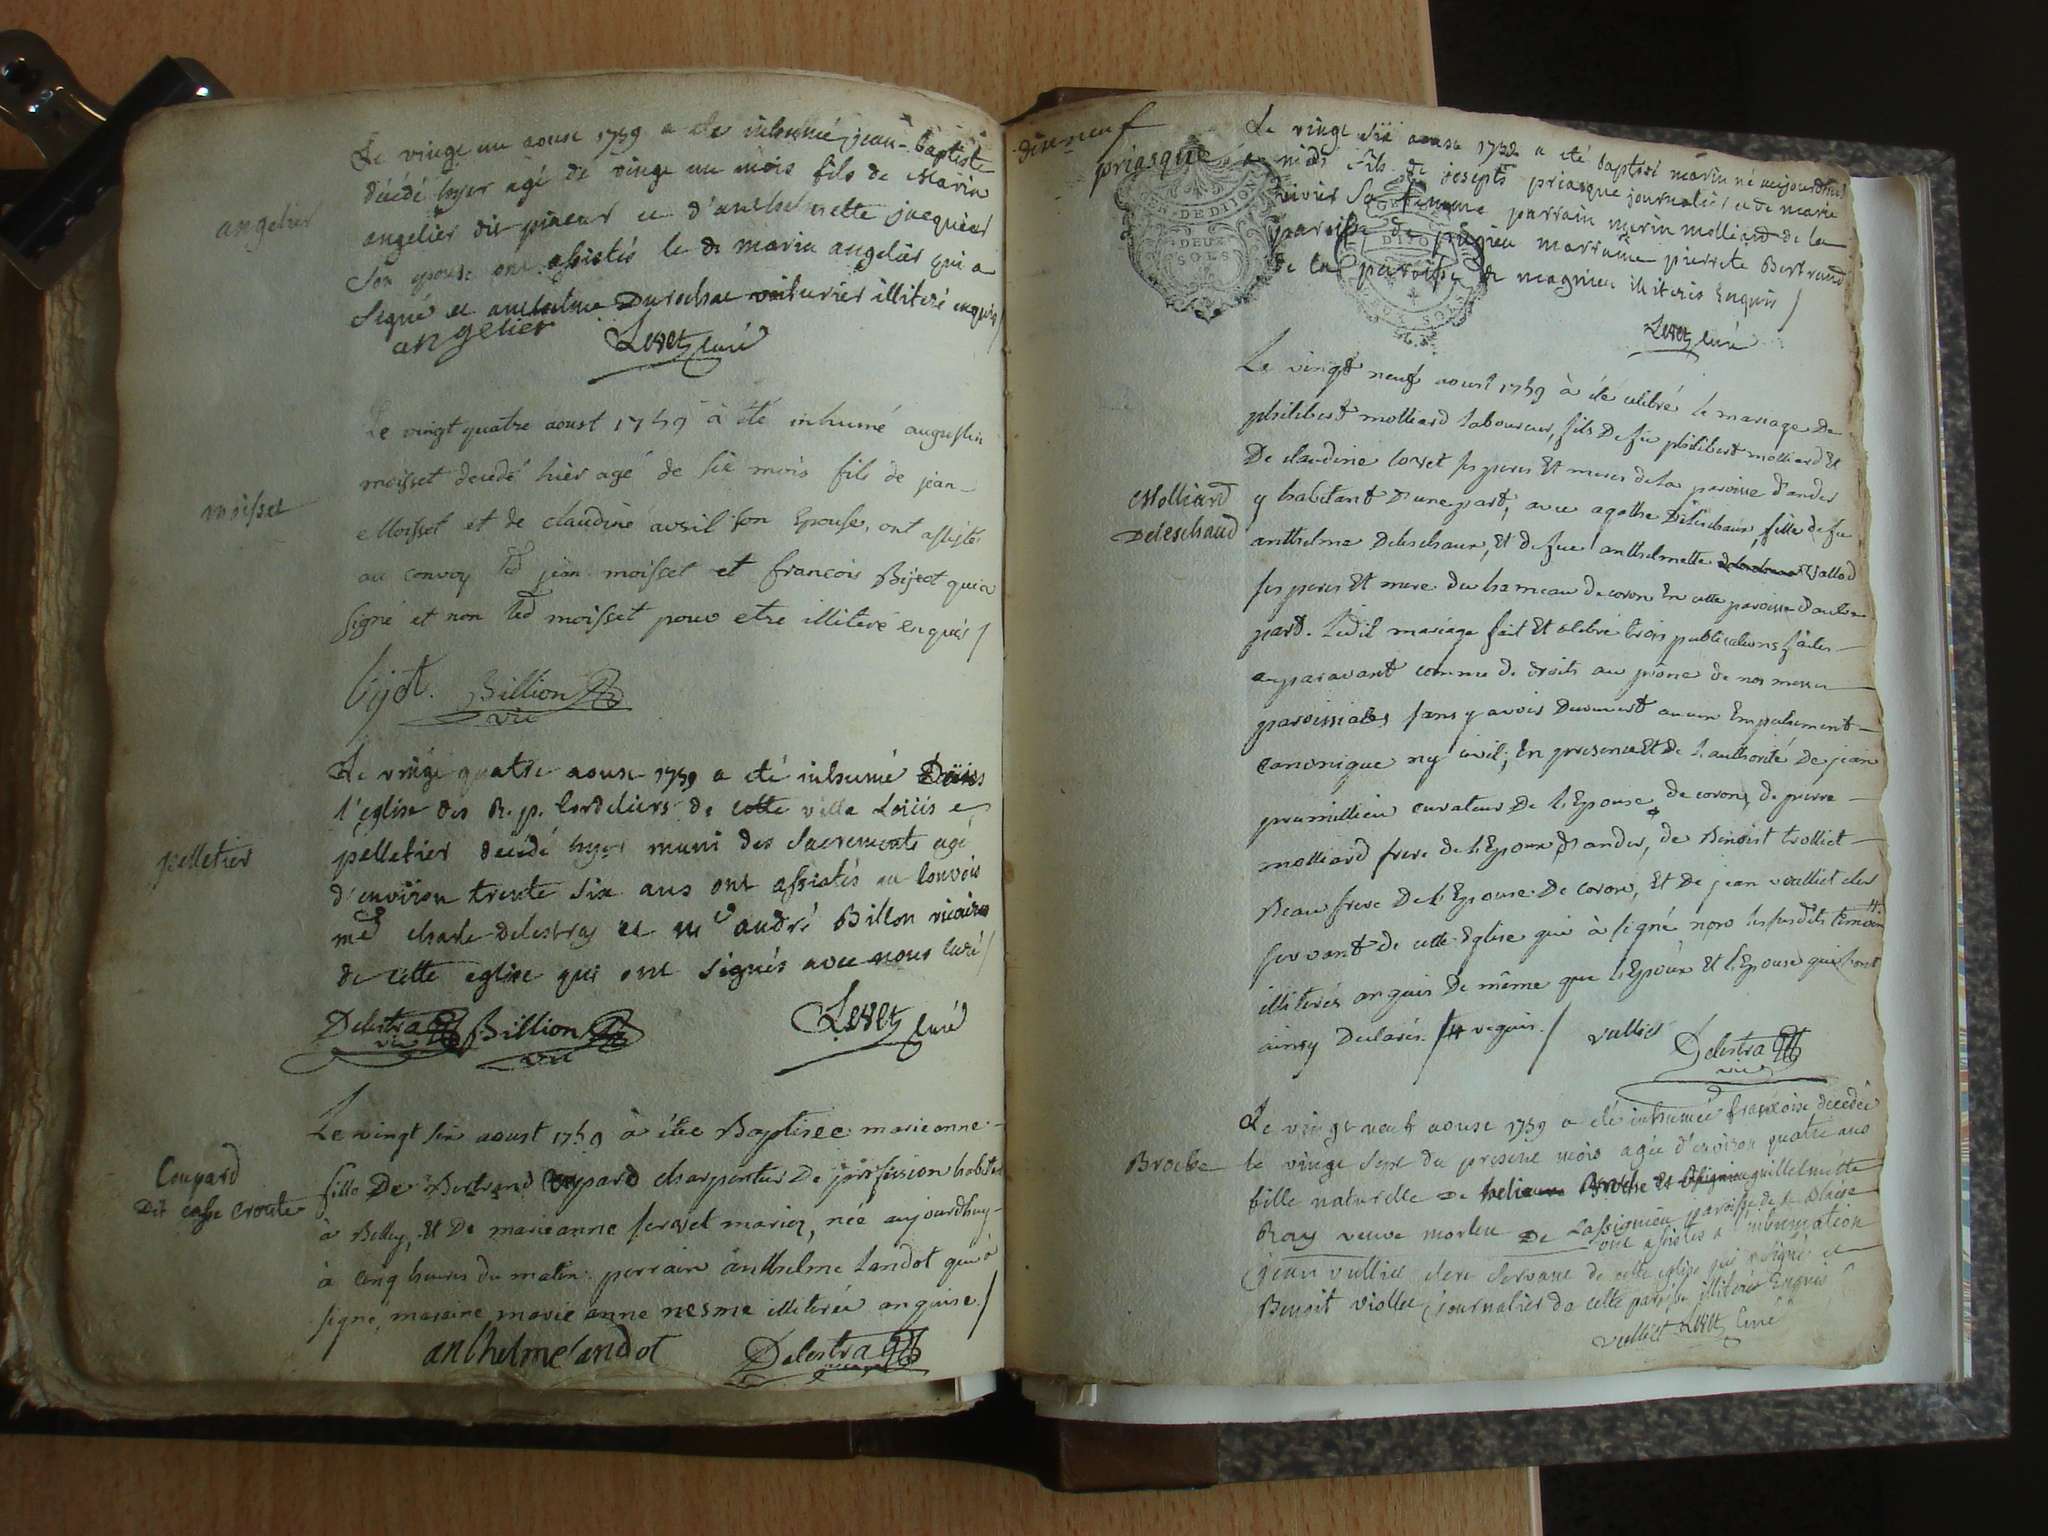 Le vingt un aoust 1759 a été inhumé jean-baptiste
décédé hyer agé de vingt un mois fils de Marin
angelier
angelier dit pineur et d'anthelmette jacquier
son epouse ont assistés le d marin angelier qui a
signé et anthelme Durochat voiturier illiteré enquis /
angelier Levetz curé
Le vingt quatre aoust 1759 à été inhumé augustin
moisset decedé hier agé de six mois fils de jean
moisset
Moisset et de claudine avril son Epouse, ont assistés
au convoy led jean moisset et francois Bijeot qui a
signé et non led moisset pour etre illiteré enquis /
bijot. Billion
vic
Le vingt quatre aoust 1759 a été inhumé Dans
l'eglise des R. p. Cordeliers de cette ville Loüis
pelletier
pelletier decédé hyer muni des Sacrements agé
d'environ trente six ans ont assistés au convois
mre charle Delestras et mre andré Billon vicaires
de cette eglise qui ont signés avec nous curé /
Delestra Billion Levetz curé
vic vic
Le vingt six aoust 1759 à étée Baptisee marie anne
Coupard
Dit casse croute
fille De Bertrand Coupard charpentier De profession habitant
à Belley, Et De marie anne servet mariez, née aujourdhuy
à cinq heures du matin. parrain anthelme Landot qui à
signé, maraine marie anne nesme illiterée enquise /
anthelme landot Delestra
dix neuf
priasque
Le vingt six aoust 1759 a été baptisé marin né aujourdhui
a midi fils de joseph priasque journalier et de marie
rivier sa femme parrain marin molliard de la
paroisse de pugieu marraine pierrete Bertrand
de la paroisse de magnieu illiterés Enquis /
DE DIJON
DEUX
SOLS
Levetz curé
Le vingt neuf aoust 1759 à été celibré le mariage De
philibert molliard Laboureur, fils De feu philibert molliard Et
De claudine Corset ses peres Et meres de la paroisse d'andert
Molliard
Deleschaud
y habitant D'une part, avec agathe Deleschaux, fille de feu
anthelme Deleschaux, Et de feue anthelmette Vallod
ses peres Et mere du hameau de coron En cette paroisse D'autre
part. Ledit mariage fait Et celebré trois publications faites
auparavant comme de droits au prône de nos messes
paroissiales sans y avoir Decouvert aucun Empechement
canonique ny civil; En presence Et De L'authorité De jean
prumillieu curateur De L'Epouse, de coron, de pierre
molliard frere de L'Epoux D'andert, de Benoist trolliet
Beau frere De L'Epouse De coron, Et De jean vuilliet clerc
servant de cette Eglise qui à signé non les susdits temoin
illiterés enquis De même que L'Epoux Et L'Epouse qui l'ont
ainsy Declarés. /# requis. / vulliet
Delestra
vic
Le vingt neuf aoust 1759 a été inhumée françoise decedée
Broche
le vingt sept du present mois agée d'environ quatre ans
fille naturelle de guillelmette
Roy veuve morlin de Lassignieu paroisse de st Blaise
ont assistés a l'inhumation
jean vulliet clerc servant de cette eglise qui a signé et
Benoit viollet journalier de cette paroisse illiteré Enquis
vulliet Levetz Curé